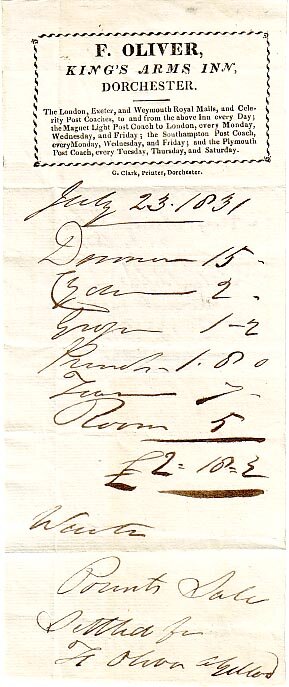 F. OLIVER,
KING'S ARMS INN,
DORCHESTER.
The London, Exeter, and Weymouth Royal Mails, and Cele-
rity Post Coaches, to and from the above Inn every Day;
the Magnet Light Post Coach to London, every Monday,
Wednesday, and Friday; the Southampton Post Coach,
every Monday, Wednesday, and Friday; and the Plymouth
Post Coach, every Tuesday, Thursday, and Saturday.
G. Clark, Printer, Dorchester.
July 23. 1831
Dinner 15 -
Cyder 2 .
1 - 2
Punch 1. 8. 0
7 -
Room 5
£2 = 18 = 2
Settled for
F Oliver